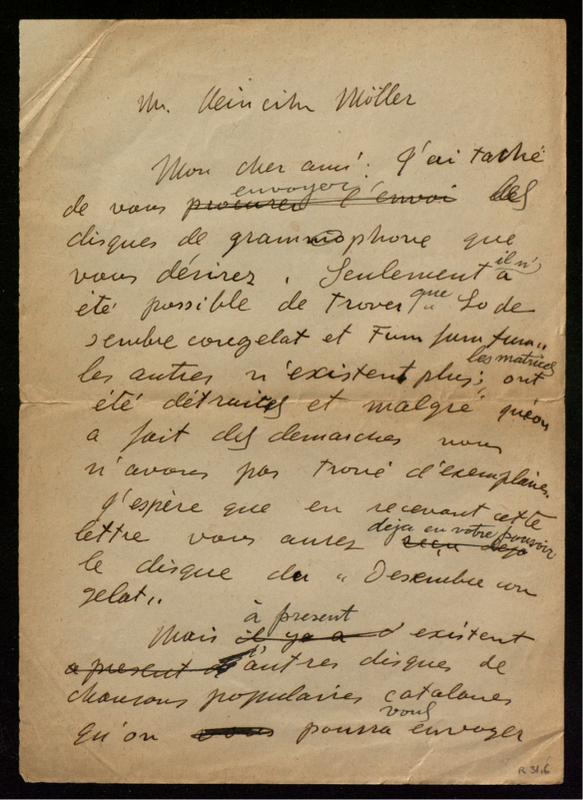 Mr. Heinrich Möller
Mon cher ami: J'ai taché
de vous procurer l'envoi envoyer les
disques de grammophone que
vous désirez. Seulement il n'a
été possible de trover que "Lo de
sembre congelat et Fum fum fum"
les autres n'existent plus; les matrices ont
été détruites et malgré qu'on
a fait des demarches nous
n'avons pas trouvé d'exemplaires.
J'espère que en recevant cette
lettre vous aurez reçu deja deja en votre pouvoir
le disque du "Desembre con
gelat".
Mais il y a à present d'existent
a present d'autres disques de
chansons populaires catalanes
qu'on vous pourra vous envoyer
R 31.6